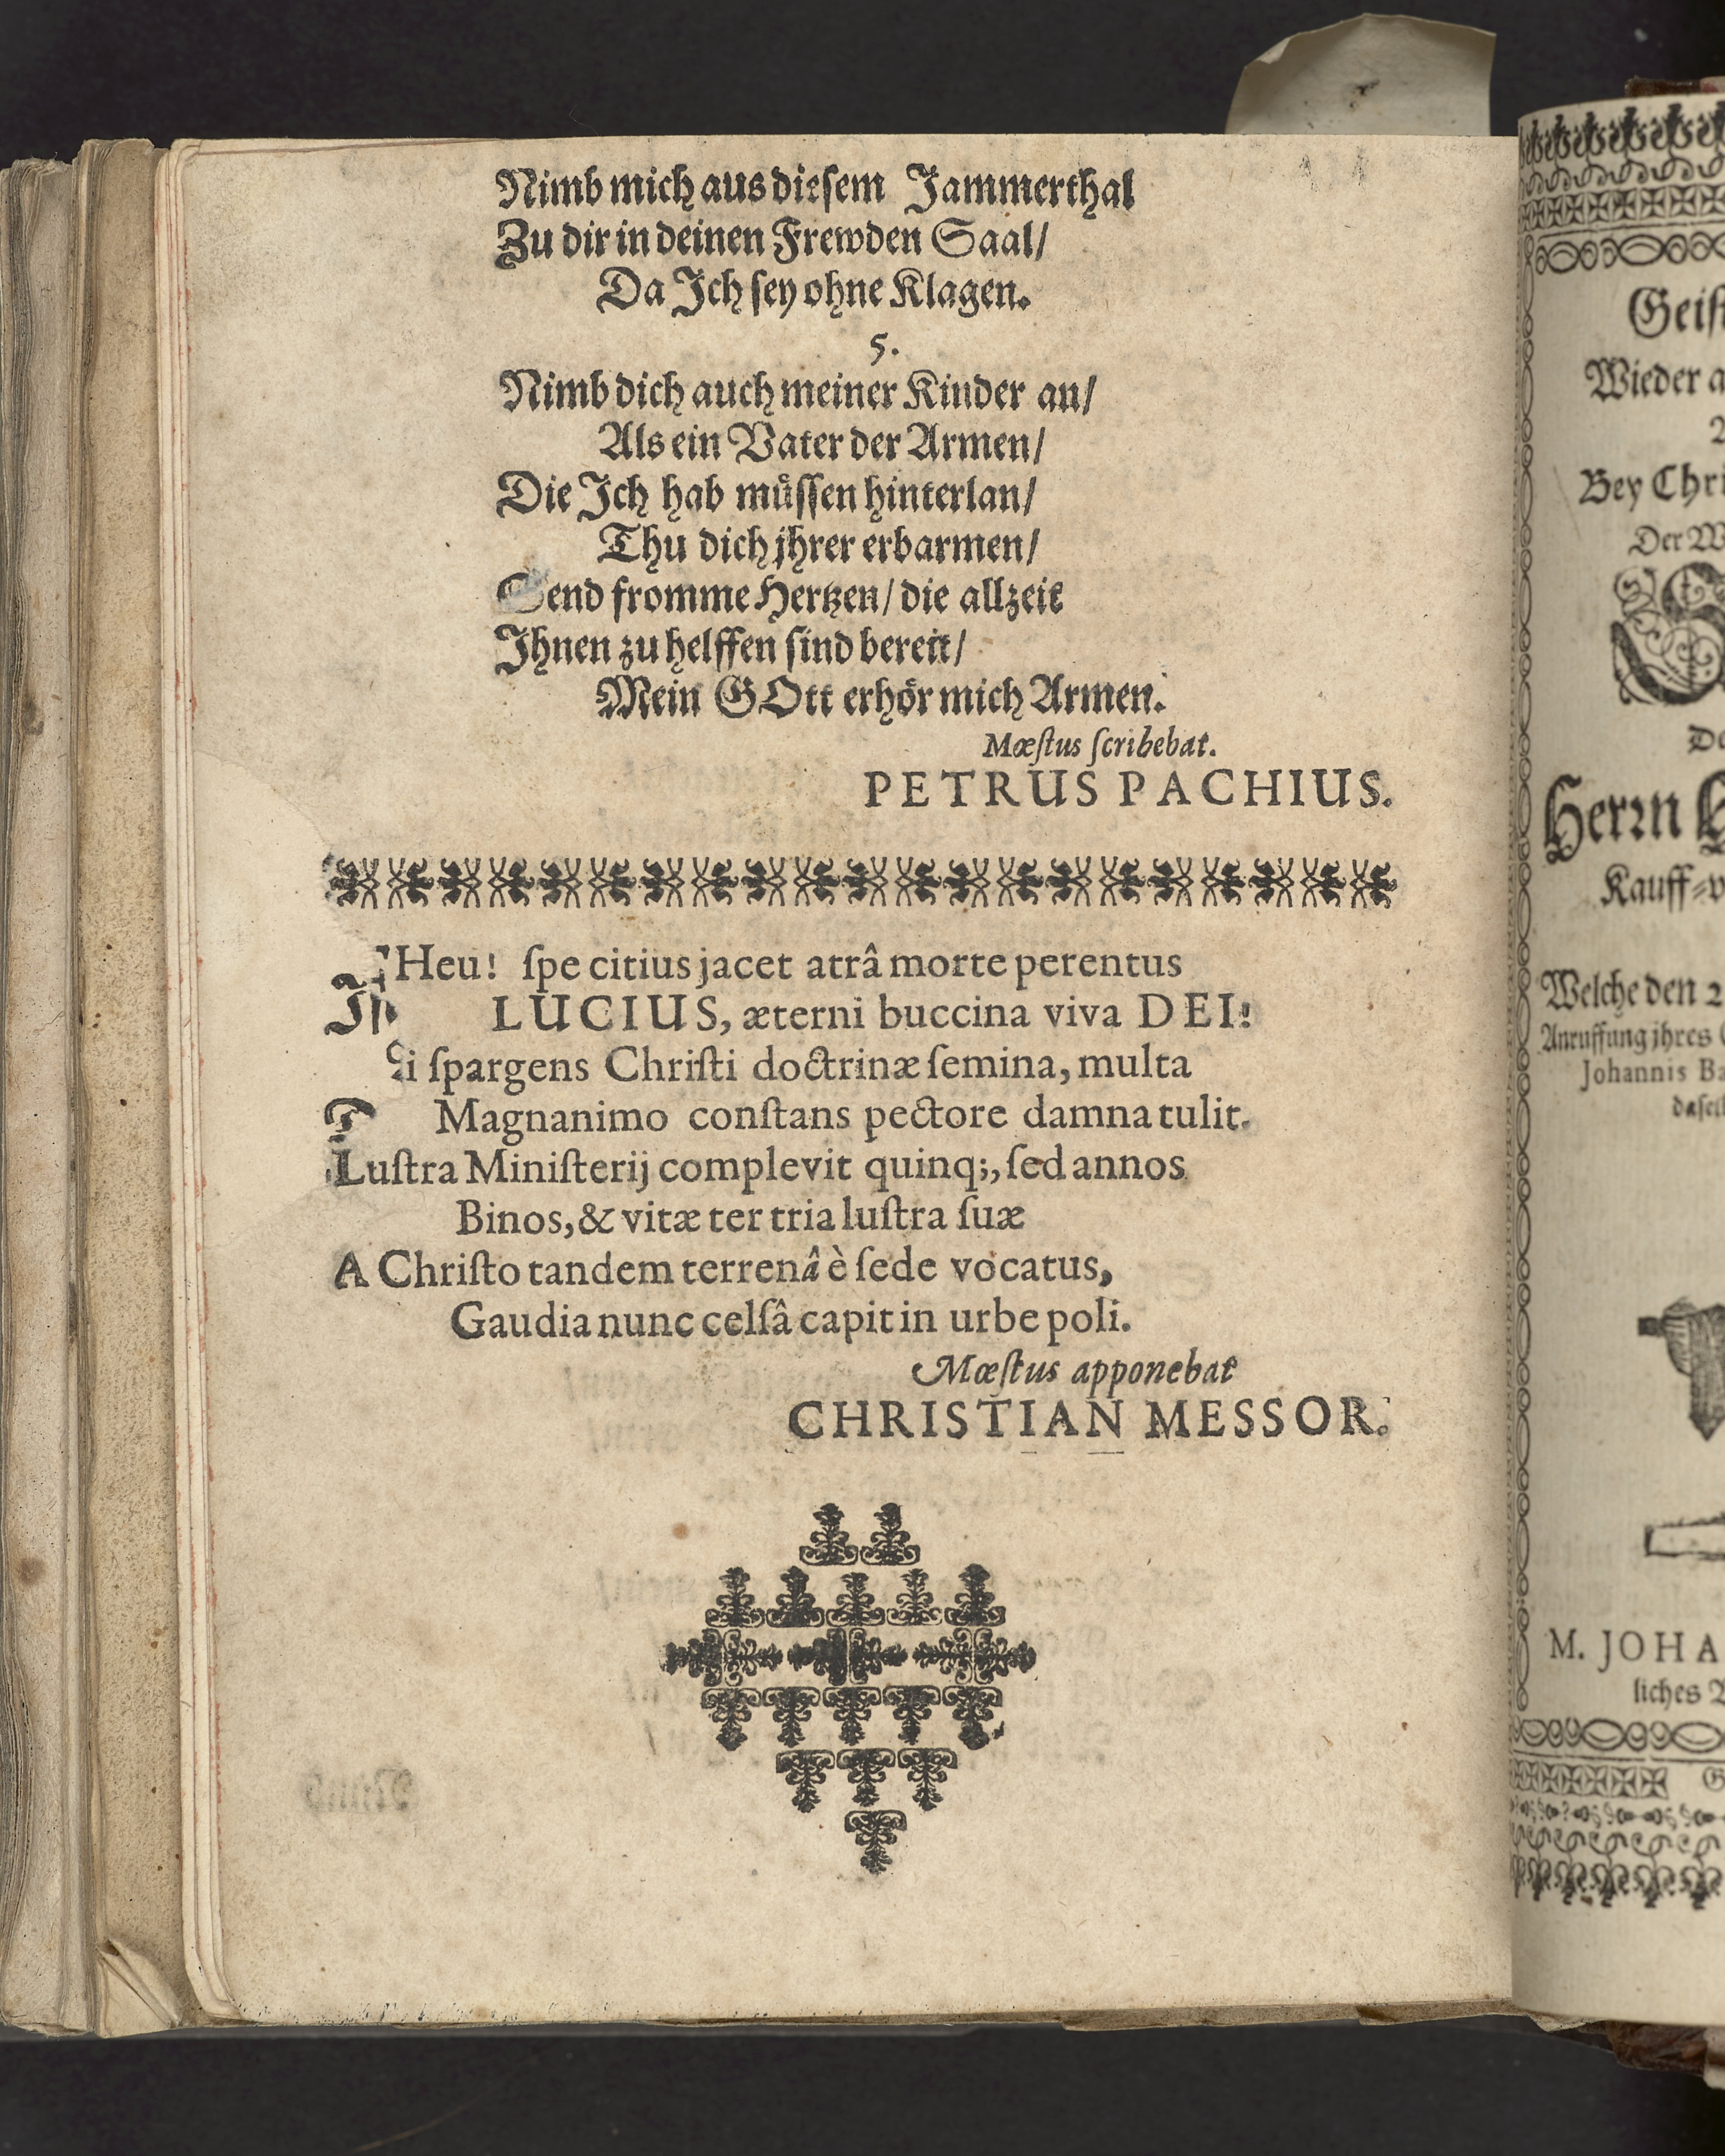 Nimb mich aus diesem Jammerthal
Zu dir in deinen Frewden Saal/
Da Jch sey ohne Klagen.
5.
Nimb dich auch meiner Kinder an/
Als ein Vater der Armen/
Die Jch hab muͤssen hinterlan/
Thu dich jhrer erbarmen/
Send fromme Hertzen/ die allzeit
Jhnen zu helffen sind bereit/
Mein GOtt erhoͤr mich Armen.
Mœſtus ſcribebat.
PETRUS PACHIUS.
Heu! ſpe citius jacet atrâ morte perentus
LUCIUS, æterni buccina viva DEI!
i ſpargens Chriſti doctrinæ ſemina, multa
Magnanimo conſtans pectore damna tulit.
Luſtra Miniſterij complevit quinq;, ſed annos
Binos, & vitæ ter tria luſtra ſuæ
A Chriſto tandem terrenâ è ſede vocatus,
Gaudia nunc celſâ capit in urbe poli.
Mœſtus apponebat
CHRISTIAN MESSOR.
Geiſt
Wieder a
Bey Chri
Der W
Da
Herrn H
Kauff-v
Welche den 2
Anruffung jhres
Johannis Ba
daſelb
M. JOHA
liches